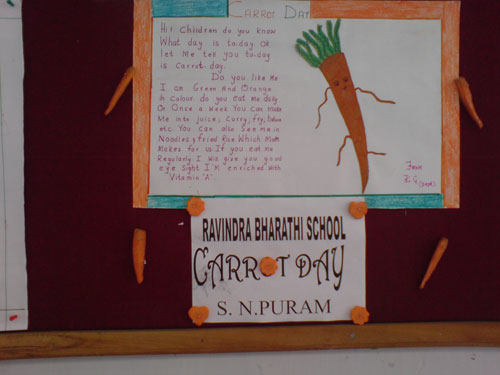 CARROT DAY
Hi! Children do you know
What day is to-day OK
let Me tell you to-day
is Carrot day.
Do you like Me
I am Green And Orange
in Colour. do you eat Me daily
Or Once a Week You Can Make
Me into juice, Curry, fry, halwa
etc You can also See me in
Noodles & fried Rice Which Mom
Makes for us. If you eat me
Regularly I will give you good
eye Sight I'M enriched with
"Vitamin 'A'.
From
RAVINDRA BHARATHI SCHOOL
CARROT DAY
S. N.PURAM